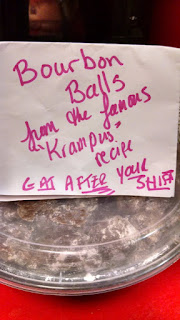 Bourbon
Balls
from the famous
"Krampus"
recipe
EAT AFTER YOUR
SHIFT